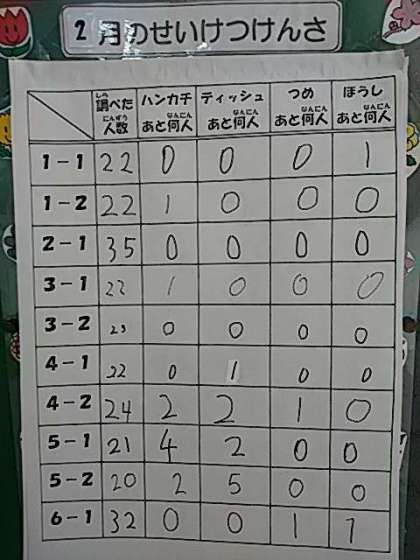 2月のせいけつけんさ
調べた人数 ハンカチあと何人 ティッシュあと何人 つめあと何人 ぼうしあと何人
1-1 22 0 0 0 1
1-2 22 1 0 0 0
2-1 35 0 0 0 0
3-1 22 1 0 0 0
3-2 23 0 0 0 0
4-1 22 0 1 0 0
4-2 24 2 2 1 0
5-1 21 4 2 0 0
5-2 20 2 5 0 0
6-1 32 0 0 1 1